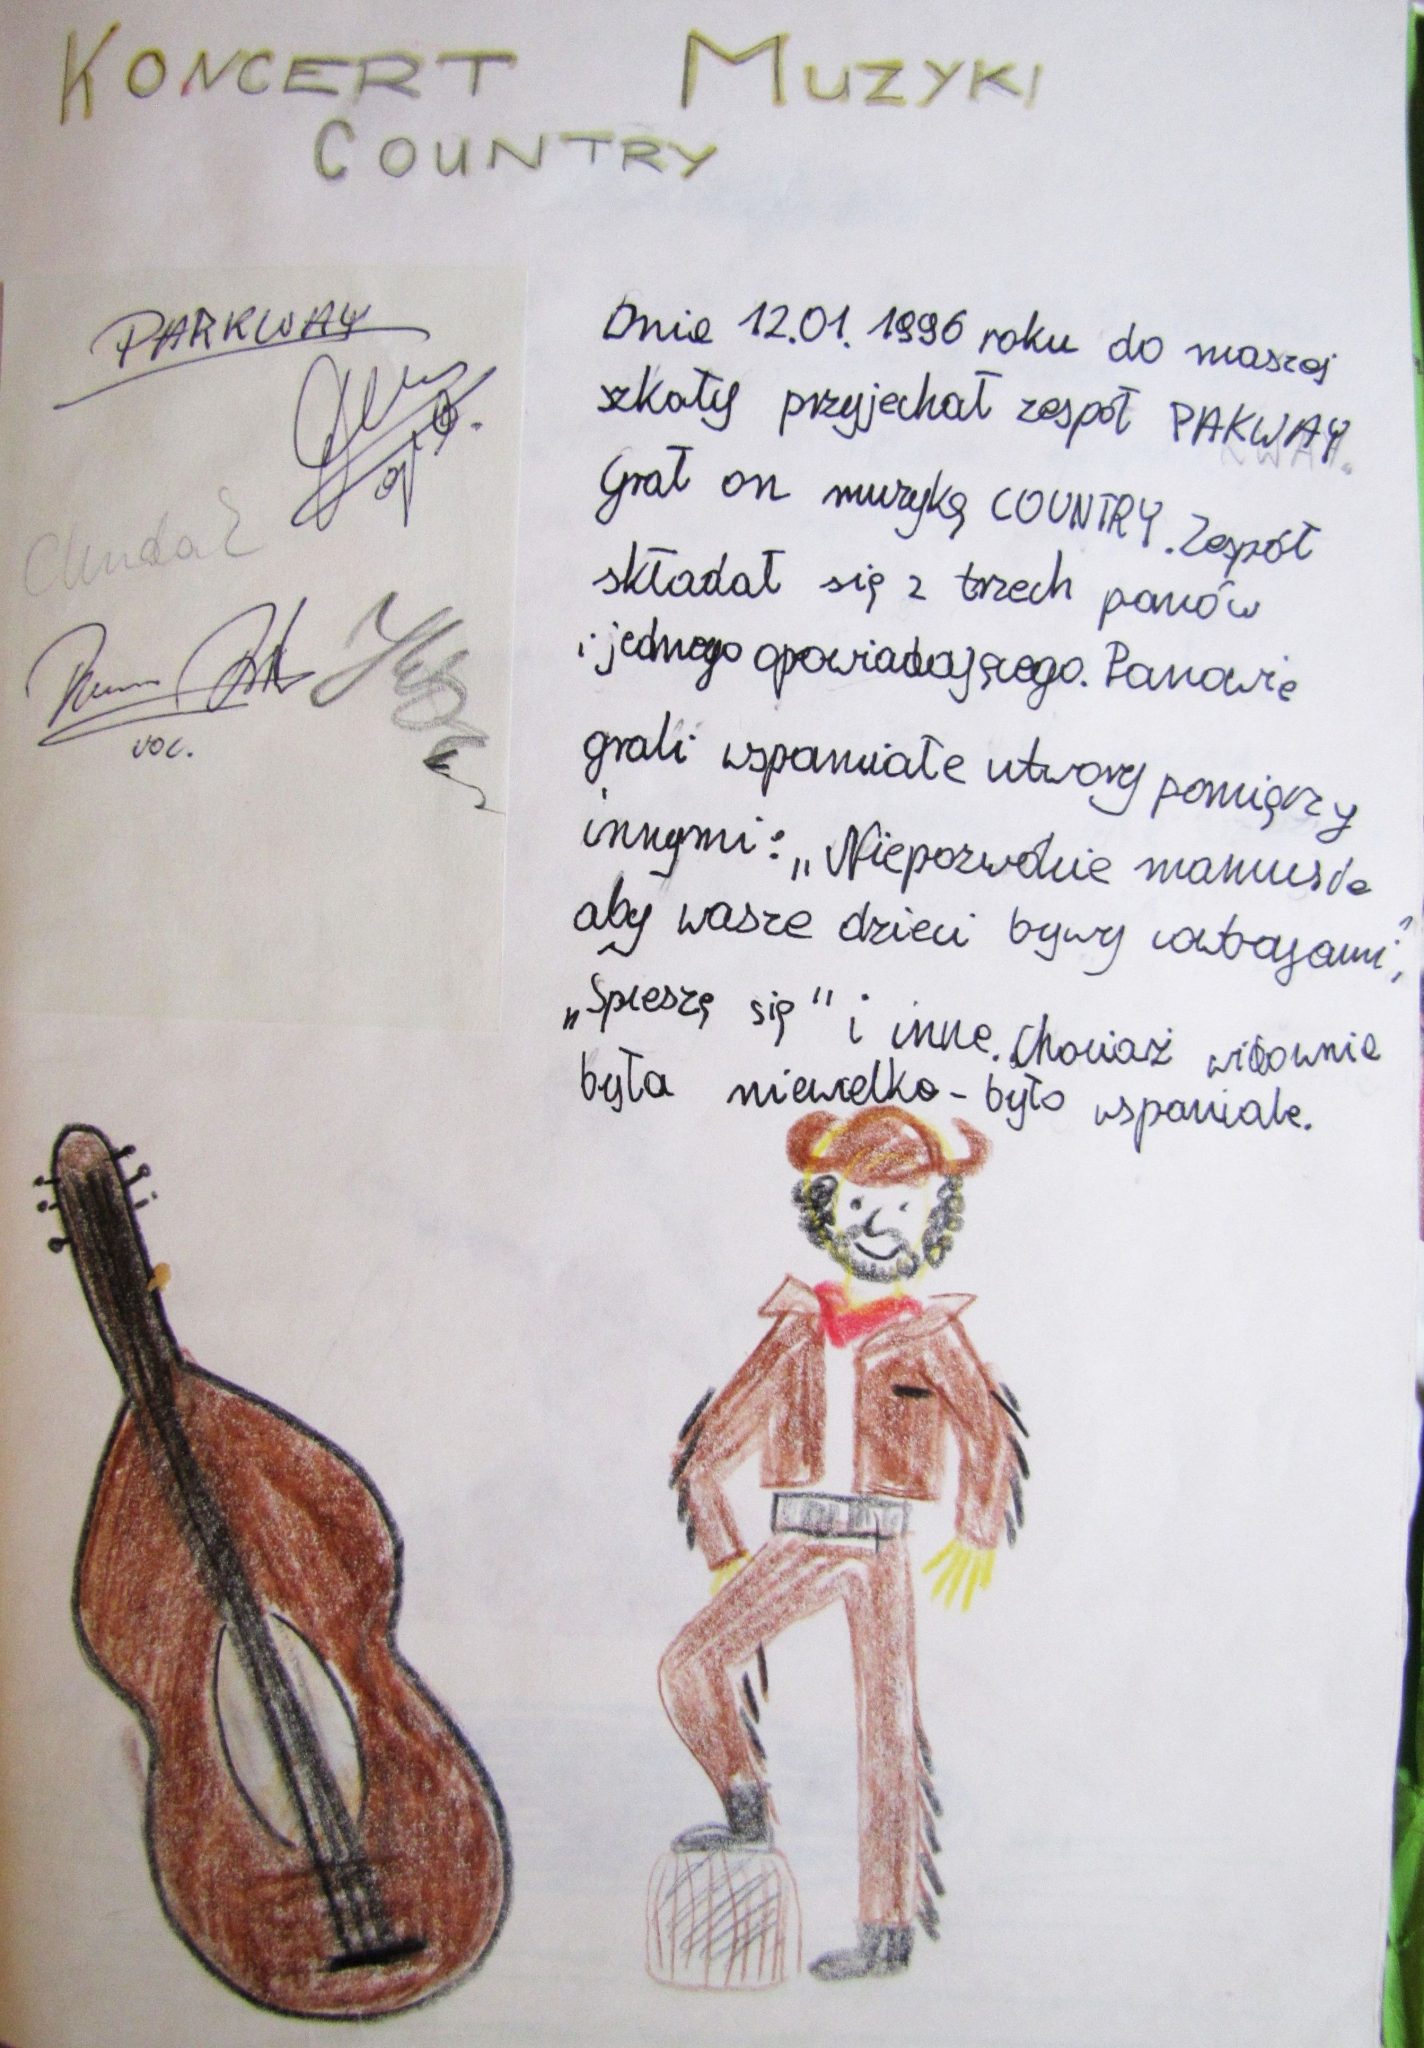 KONCERT MUZYKI
COUNTRY
PARKWAY
voc.
Dnia 12.01.1996 roku do naszej
szkoły przyjechał zespół PAKWAY.
Grał on muzykę COUNTRY. Zespół
składał się z trzech panów
i jednego opowiadającego. Panowie
grali wspaniałe utwory pomięrzy
innymi: „Niepozwólcie mamuśie
aby wasze dzieci bywy cowboyami",
„Spieszę się" i inne. Chociaż widownia
była niewielka - było wspaniale.